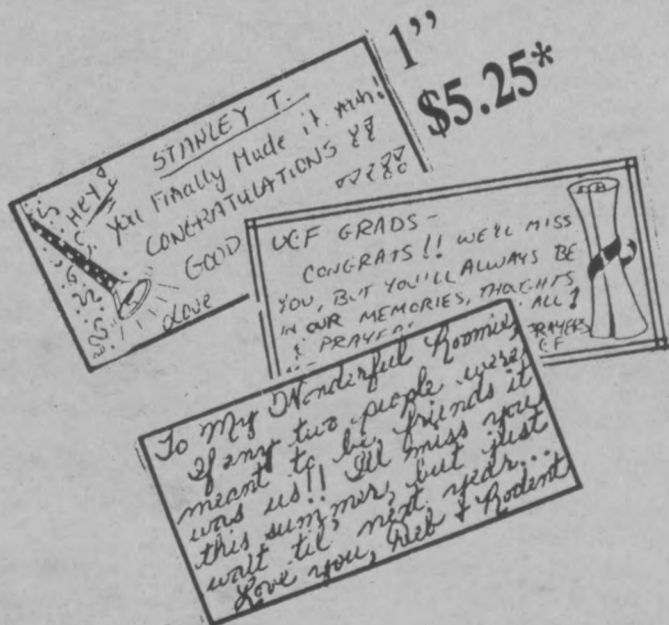 1"
$5.25*
HEY!
STANLEY T.
You Finally Made it
CONGRATULATIONS
GOOD
Love
UCF GRADS -
CONGRATS!! WE'LL MISS
YOU, BUT YOU'LL ALWAYS BE
IN OUR MEMORIES, THOUGHTS
& PRAYER
ALL
PRAYERS
To My Wonderful Roomie,
If any two people were
meant to be friends it
was us!! I'll miss you
this summer, but just
wait til' next year...
Love you, Deb & Rodent